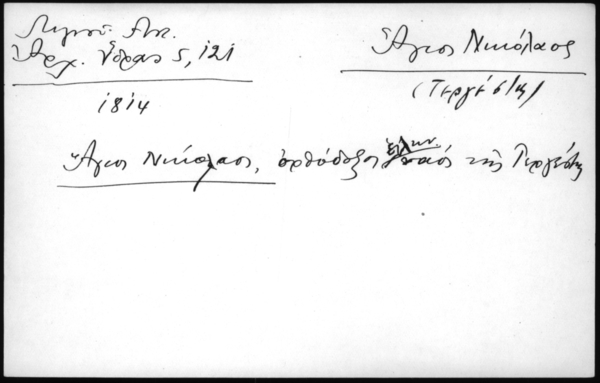 Λιγνού Αντ.
Ἀρχ. Ὕδρας 5, 121
1814
Ἅγιος Νικόλαος
(Τεργέστη)
Ἅγιος Νικόλαος, ὀρθόδοξος ἑλλην. ναός τῆς Τεργέστης